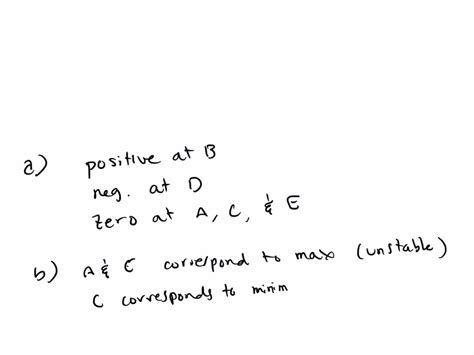 a) positive at B
neg. at D
zero at A, C, & E
b) A & E correspond to max (unstable)
C corresponds to minim